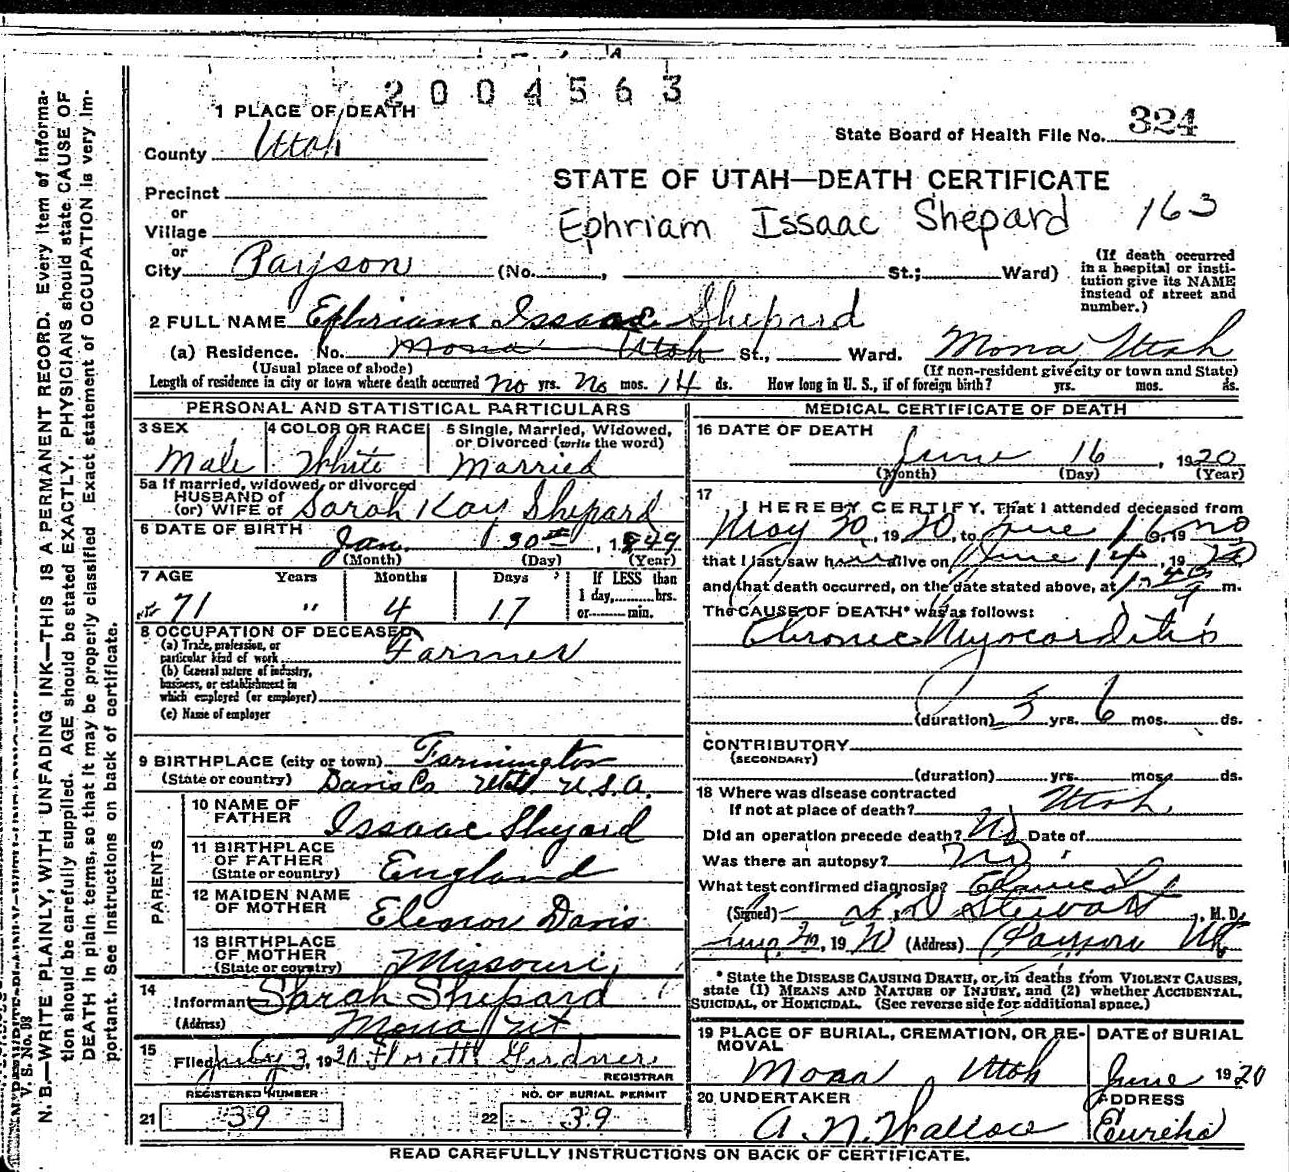 2004563
1 PLACE OF DEATH
State Board of Health File No. 324
County Utah
STATE OF UTAH—DEATH CERTIFICATE
Precinct
or
Village
Ephriam Issaac Shepard 163
or
City Payson (No. , St.; Ward)
(If death occurred
in a hospital or insti-
tution give its NAME
instead of street and
number.)
2 FULL NAME Ephriam Issaac Shepard
(a) Residence. No. Mona Utah St., Ward. Mona, Utah
(Usual place of abode) (If non-resident give city or town and State)
Length of residence in city or town where death occurred no yrs. No mos. 14 ds. How long in U. S., if of foreign birth? yrs. mos. ds.
PERSONAL AND STATISTICAL PARTICULARS
3 SEX 4 COLOR OR RACE 5 Single, Married, Widowed,
or Divorced (write the word)
Male White Married
5a If married, widowed, or divorced
HUSBAND of
(or) WIFE of Sarah Kay Shepard
6 DATE OF BIRTH
Jan. 30th, 1849
(Month) (Day) (Year)
7 AGE Years Months Days If LESS than
1 day, hrs.
or min.
71 " 4 17
8 OCCUPATION OF DECEASED
(a) Trade, profession, or
particular kind of work Farmer
(b) General nature of industry,
business, or establishment in
which employed (or employer)
(c) Name of employer
9 BIRTHPLACE (city or town) Farmington
(State or country) Davis Co. Utah U.S.A.
PARENTS
10 NAME OF
FATHER Issaac Shepard
11 BIRTHPLACE
OF FATHER
(State or country) England
12 MAIDEN NAME
OF MOTHER Elenor Davis
13 BIRTHPLACE
OF MOTHER
(State or country) Missouri
14
Informant Sarah Shepard
(Address) Mona Ut
15
Filed July 3, 1920 Gardner
REGISTRAR
REGISTERED NUMBER NO. OF BURIAL PERMIT
21 39 22 39
MEDICAL CERTIFICATE OF DEATH
16 DATE OF DEATH
June 16, 1920
(Month) (Day) (Year)
17
I HEREBY CERTIFY, That I attended deceased from
May 20, 1920, to June 16, 19 20
that I last saw h alive on June 14, 1920
and that death occurred, on the date stated above, at m.
The CAUSE OF DEATH* was as follows:
Chronic Myocarditis
(duration) 3 yrs. 6 mos. ds.
CONTRIBUTORY
(SECONDARY)
(duration) yrs. mos. ds.
18 Where was disease contracted
If not at place of death? Utah
Did an operation precede death? No Date of
Was there an autopsy? No
What test confirmed diagnosis? Clinical
(Signed) Stewart, M. D.
, 19 20 (Address) Payson Ut
* State the DISEASE CAUSING DEATH, or, in deaths from VIOLENT CAUSES,
state (1) MEANS AND NATURE OF INJURY, and (2) whether ACCIDENTAL,
SUICIDAL, or HOMICIDAL. (See reverse side for additional space.)
19 PLACE OF BURIAL, CREMATION, OR RE-
MOVAL
DATE of BURIAL
Mona Utah June 1920
20 UNDERTAKER ADDRESS
A. N. Wallace Eureka
READ CAREFULLY INSTRUCTIONS ON BACK OF CERTIFICATE.
V. S. No. 08
N. B.—WRITE PLAINLY, WITH UNFADING INK—THIS IS A PERMANENT RECORD. Every item of informa-
tion should be carefully supplied. AGE should be stated EXACTLY. PHYSICIANS should state CAUSE OF
DEATH in plain terms, so that it may be properly classified. Exact statement of OCCUPATION is very im-
portant. See instructions on back of certificate.